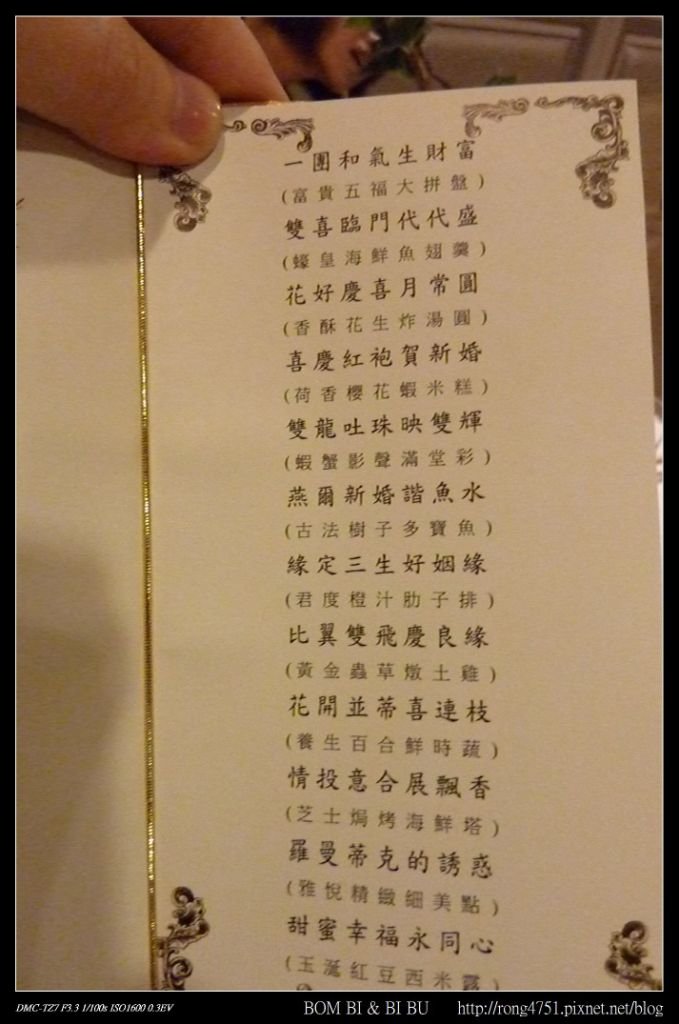 一團和氣生財富
(富貴五福大拼盤)
雙喜臨門代代盛
(蠔皇海鮮魚翅羹)
花好慶喜月常圓
(香酥花生炸湯圓)
喜慶紅袍賀新婚
(荷香櫻花蝦米糕)
雙龍吐珠映雙輝
(蝦蟹影聲滿堂彩)
燕爾新婚諧魚水
(古法樹子多寶魚)
緣定三生好姻緣
(君度橙汁肋子排)
比翼雙飛慶良緣
(黃金蟲草燉土雞)
花開並蒂喜連枝
(養生百合鮮時蔬)
情投意合展飄香
(芝士焗烤海鮮塔)
羅曼蒂克的誘惑
(雅悅精緻細美點)
甜蜜幸福永同心
(玉涎紅豆西米露)
DMC-TZ7 F3.3 1/100s ISO1600 0.3EV
BOM BI & BI BU
http://rong4751.pixnet.net/blog